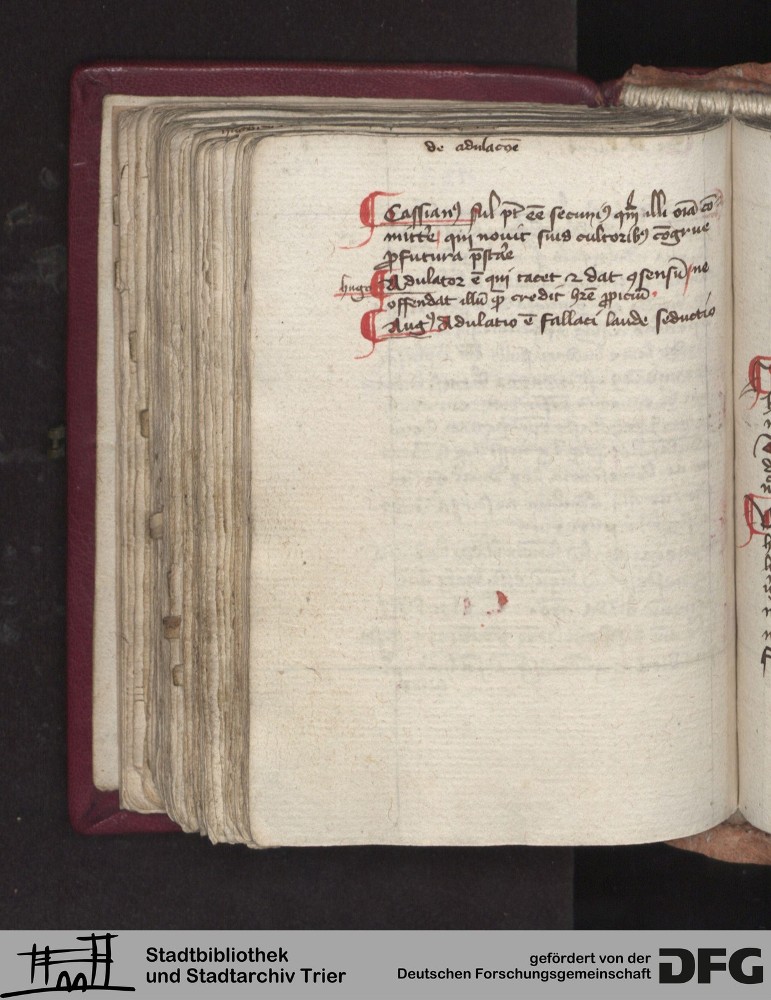 de adulacōe
Cassian⁹ ful pt̄ eē secuni⁹ qm̄ illi oīa cō
mitt̄e qui nouit suis cultorib⁹ cōgrue
ꝓfutura p̄sta͛e
hugo Adulator ē qui tacet ⁊ dat ꝯsensū ne
offendat illū qm̄ credit h̄re ꝓpiciū
Aug⁹ Adulatio ē fallaci laude seductio
Stadtbibliothek
und Stadtarchiv Trier
gefördert von der
Deutschen Forschungsgemeinschaft
DFG